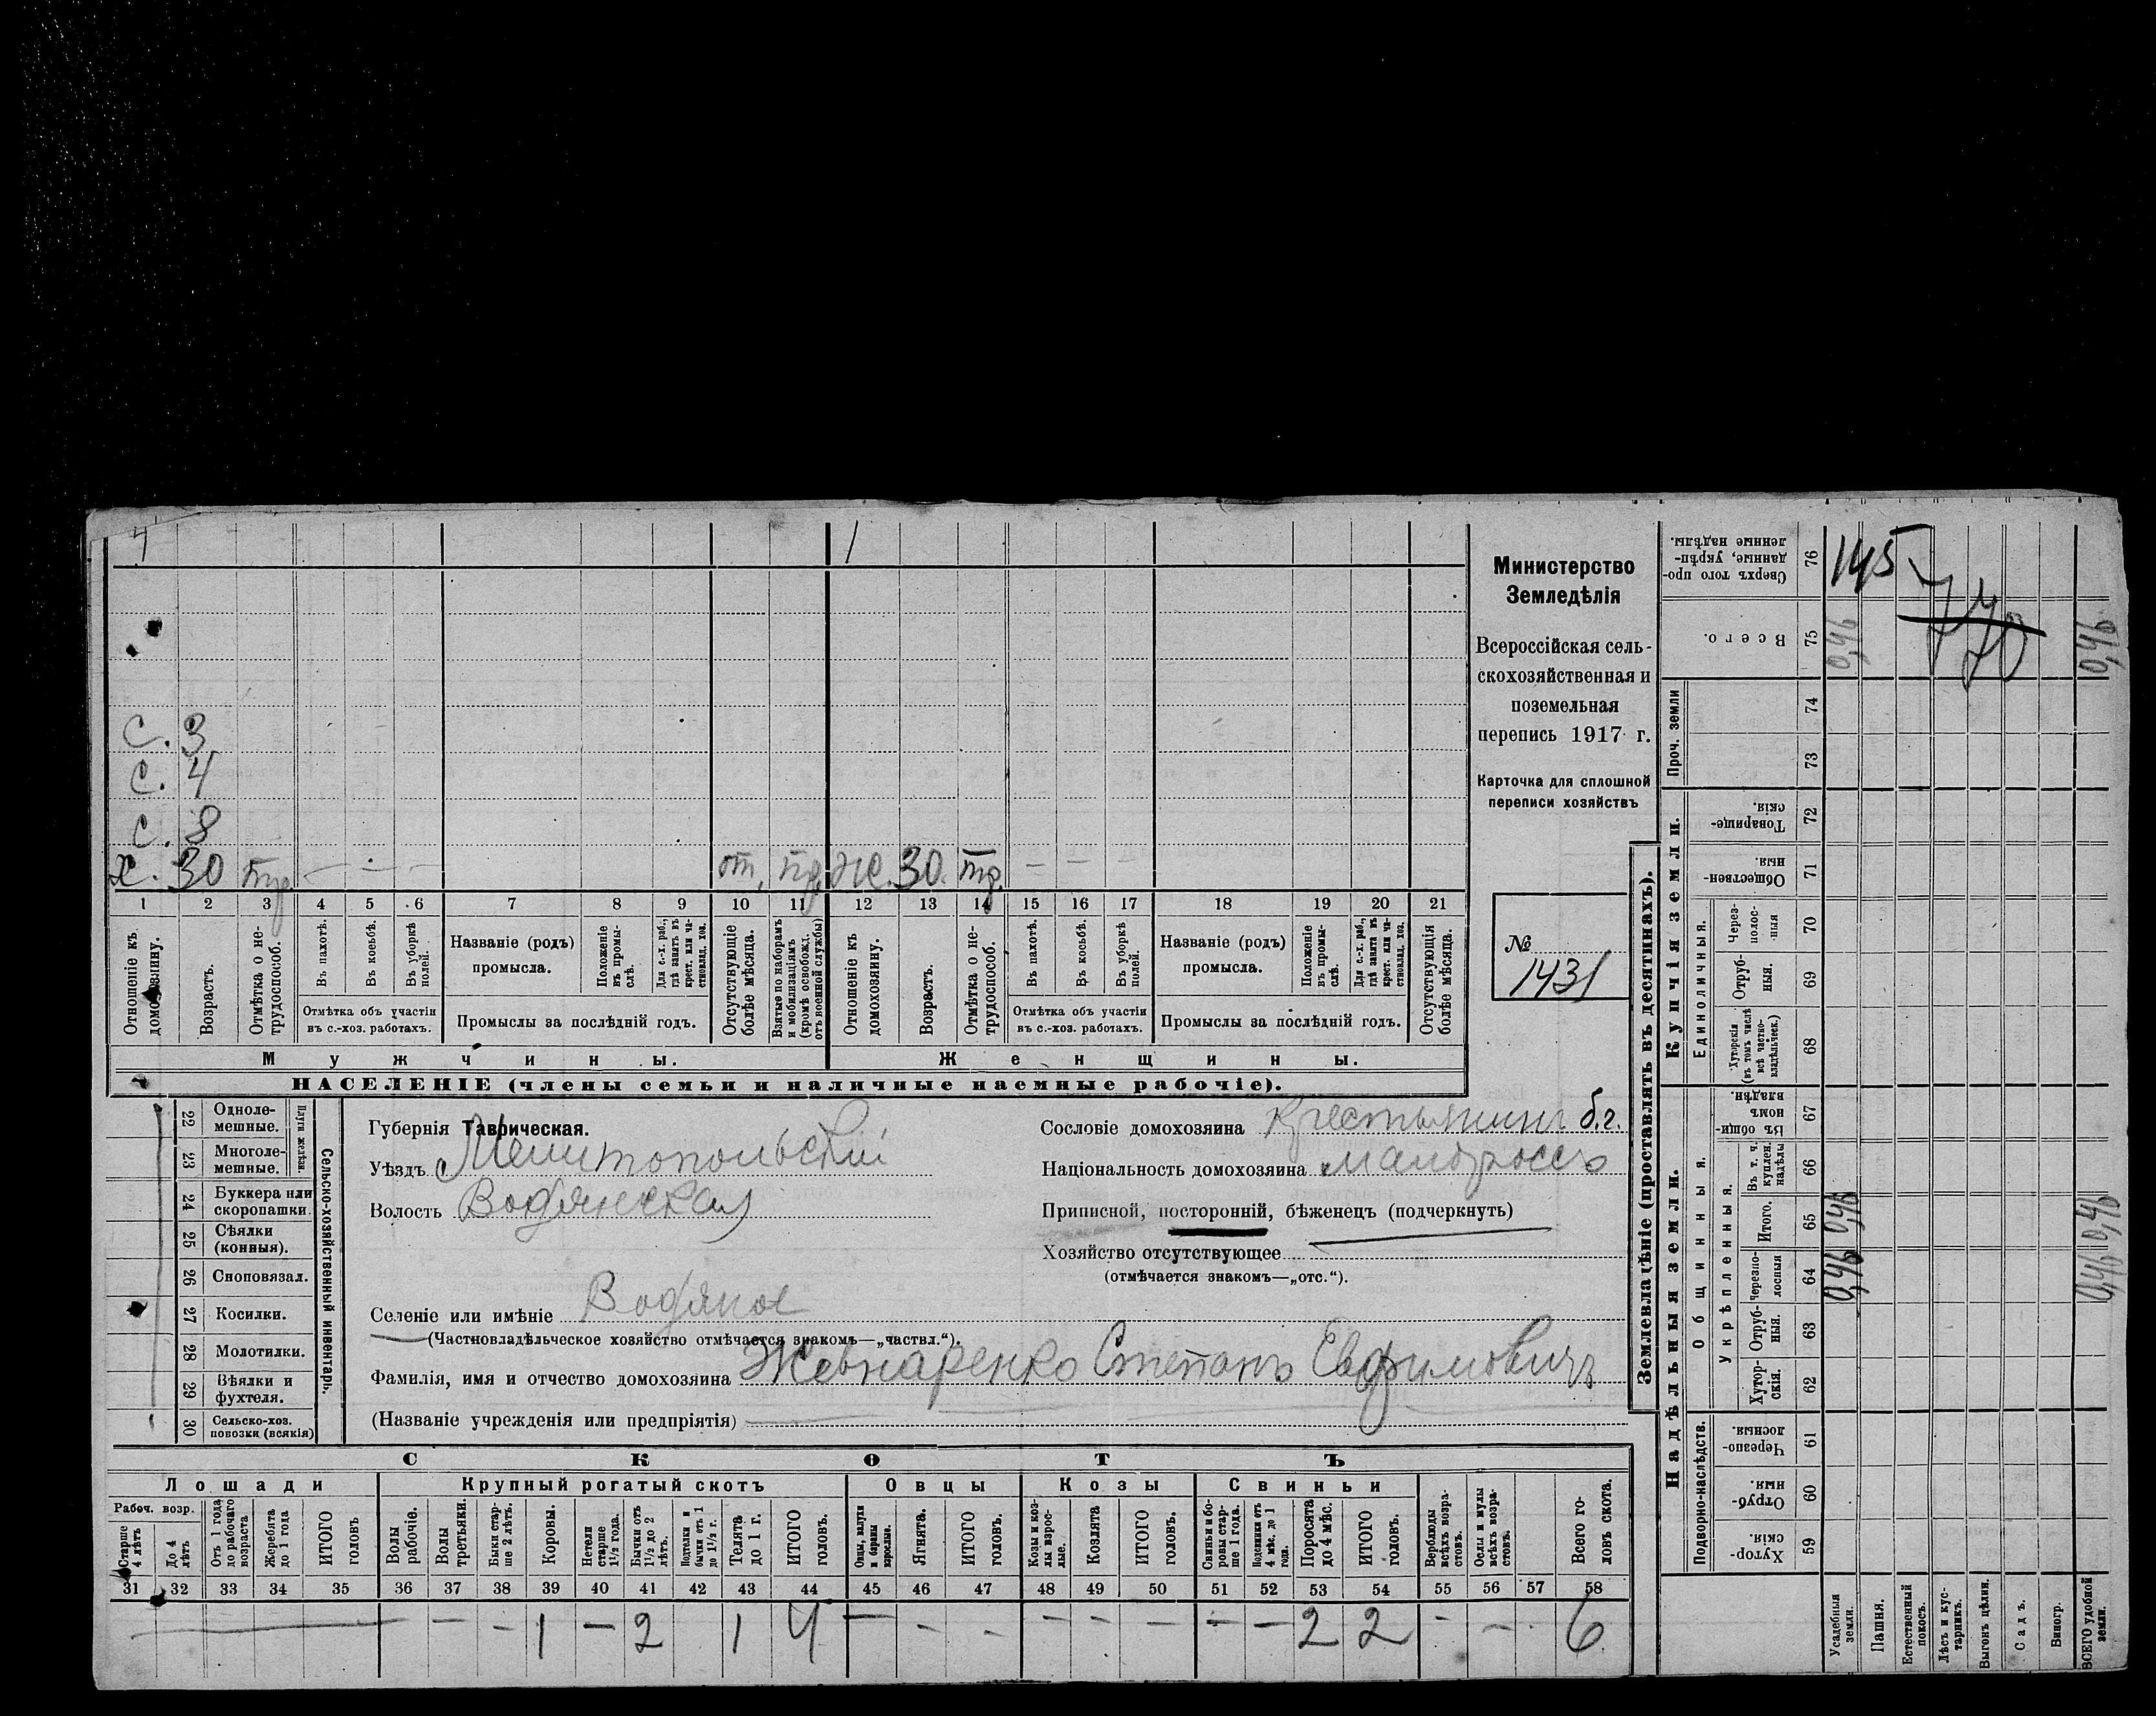 4 1
С. 3
С. 4
С. 8
Х. 30 тр. — — — от. Ж. 30 тр. — —
1 2 3 4 5 6 7 8 9 10 11 12 13 14 15 16 17 18 19 20 21
Отношеніе къ домохозяину.
Возрастъ.
Отмѣтка о нетрудоспособ.
Въ пахотѣ.
Въ косьбѣ.
Въ уборкѣ полей.
Отмѣтка объ участіи въ с.-хоз. работахъ.
Названіе (родъ) промысла.
Положеніе въ промыслѣ.
Для с.-х. раб., гдѣ занятъ въ крест. или частновлад. хоз.
Промыслы за послѣдній годъ.
Отсутствующіе болѣе мѣсяца.
Взятые по наборамъ и мобилизаціямъ (кромѣ освобожд. отъ военной службы)
Отношеніе къ домохозяину.
Возрастъ.
Отмѣтка о нетрудоспособ.
Въ пахотѣ.
Въ косьбѣ.
Въ уборкѣ полей.
Отмѣтка объ участіи въ с.-хоз. работахъ.
Названіе (родъ) промысла.
Положеніе въ промыслѣ.
Для с.-х. раб., гдѣ заняты въ крест. или частновлад. хоз.
Промыслы за послѣдній годъ.
Отсутствующія болѣе мѣсяца.
Мужчины. Женщины.
НАСЕЛЕНІЕ (члены семьи и наличные наемные рабочіе).
Министерство
Земледѣлія
Всероссійская сель-
скохозяйственная и
поземельная
перепись 1917 г.
Карточка для сплошной
переписи хозяйствъ
№
1431
22 Одноле-
мешные.
23 Многоле-
мешные.
Плуги желѣзн.
24 Буккера или
скоропашки.
25 Сѣялки
(конныя).
26 Сноповязал.
27 Косилки.
28 Молотилки.
29 Вѣялки и
фухтеля.
30 Сельско-хоз.
повозки (всякія)
Сельско-хозяйственный инвентарь.
Губернія Таврическая.
Уѣздъ Мелитопольскій
Волость Водянская
Селеніе или имѣніе Водяное
(Частновладѣльческое хозяйство отмѣчается знакомъ—„частвл.“).
Фамилія, имя и отчество домохозяина Жевнаренко Степанъ Евфимовичъ
(Названіе учрежденія или предпріятія)
Сословіе домохозяина Крестьянинъ б.г.
Національность домохозяина малороссъ
Приписной, посторонній, бѣженецъ (подчеркнуть)
Хозяйство отсутствующее
(отмѣчается знакомъ—„отс.“).
СКОТЪ
Лошади Крупный рогатый скотъ Овцы Козы Свиньи
Рабоч. возр.
Старше 4 лѣтъ
До 4 лѣтъ
Отъ 1 года до рабочаго возраста
Жеребята до 1 года
ИТОГО головъ
Волы рабочіе.
Волы третьяки.
Быки старше 2 лѣтъ.
Коровы.
Нетели старше 1½ года.
Бычки отъ 1½ до 2 лѣтъ.
Подтелки и бычки отъ 1 до 1½ г.
Телята до 1 г.
ИТОГО головъ.
Овцы, валухи и бараны взрослые.
Ягнята.
ИТОГО головъ.
Козы и козлы взрослые.
Козлята
ИТОГО головъ.
Свиньи и боровы старше 1 года.
Подсвинки отъ 4 мѣс. до 1 года.
Поросята до 4 мѣс.
ИТОГО головъ.
Верблюды всѣхъ возрастовъ.
Ослы и мулы всѣхъ возрастовъ.
Всего головъ скота.
31 32 33 34 35 36 37 38 39 40 41 42 43 44 45 46 47 48 49 50 51 52 53 54 55 56 57 58
— — — 1 — 2 1 4 — — — — — — — — 2 2 — — 6
Землевладѣніе (проставлять въ десятинахъ).
Надѣльныя земли. Купчія земли. Проч. земли
Подворно-наслѣдств.
Общинныя.
Укрѣпленныя.
Единоличныя.
Хуторскія. 59
Отрубныя. 60
Черезполосныя. 61
Хуторскія. 62
Отрубныя. 63
Черезполосныя 64
Итого. 65
Въ т. ч. куплен. надѣлы 66
Въ общинномъ владѣн. 67
Хуторскія (въ томъ числѣ всѣ частновладѣльческ.) 68
Отрубныя. 69
Черезполосныя 70
Общественныя. 71
Товарищескія. 72
73
74
Всего. 75
Сверхъ того проданные, укрѣпленные надѣлы. 76
145
770
0,46 0,46
0,46 0,46
0,46 0,46
Усадебныя земли.
Пашня.
Естественный покосъ.
Лѣсъ и кустарникъ.
Выгонъ цѣлин.
Садъ.
Виногр.
ВСЕГО удобной земли.